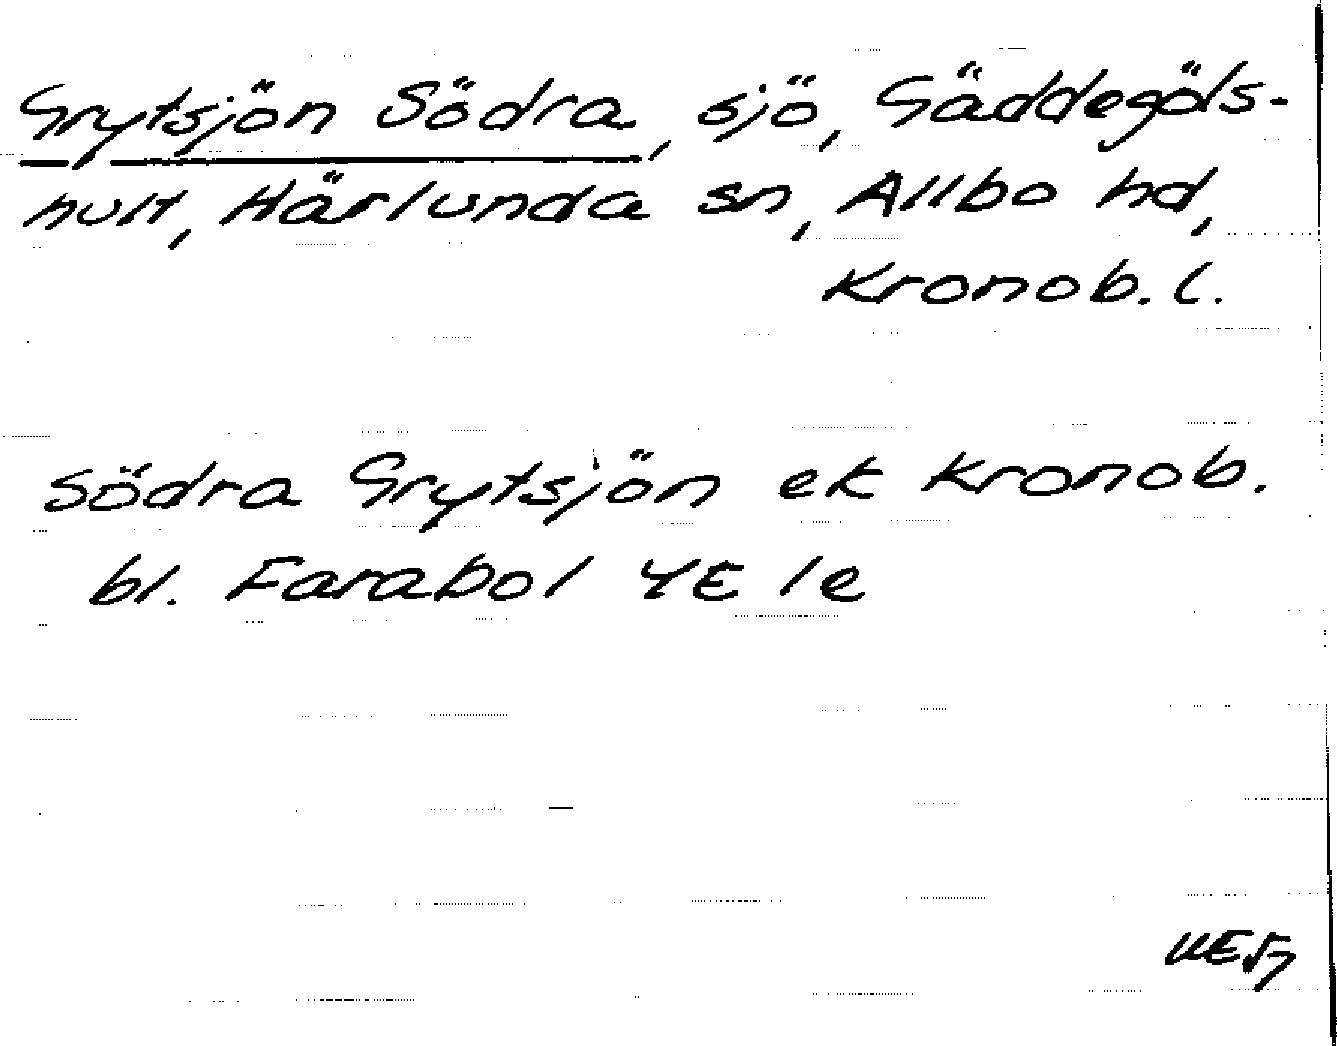 Grytsjön Södra, sjö, Gäddegöls-
hult, Härlunda sn, Allbo hd,
Kronob. l.
Södra Grytsjön ek Kronob.
bl. Farabol 4E 1e